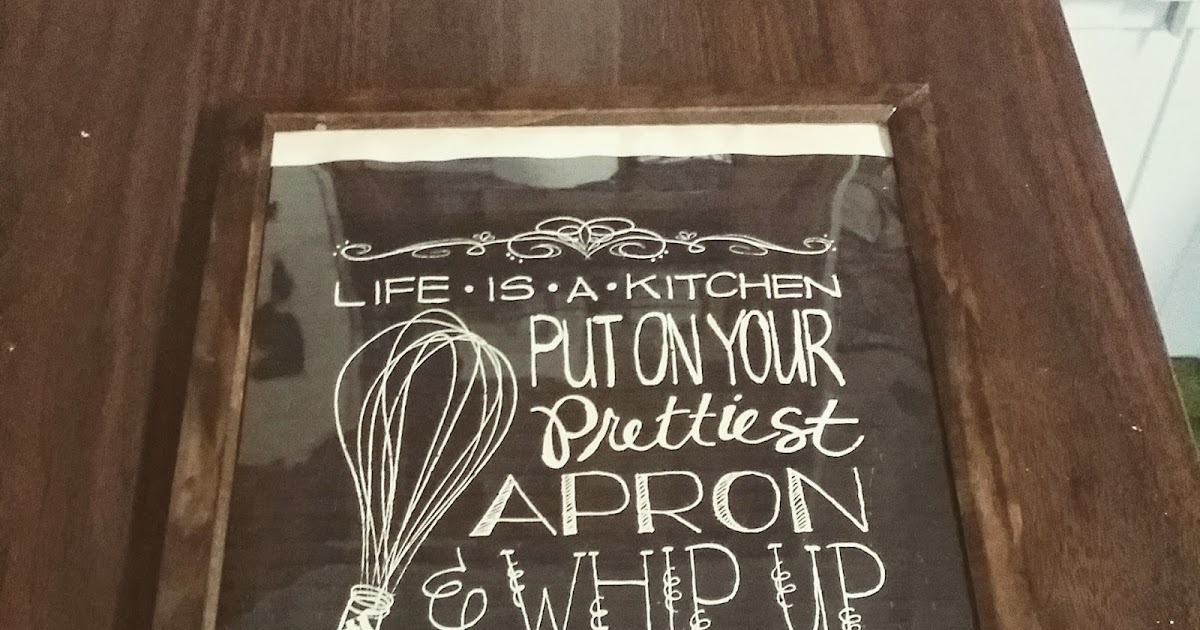 LIFE • IS • A • KITCHEN
PUT ON YOUR
Prettiest
APRON
& WHIP UP